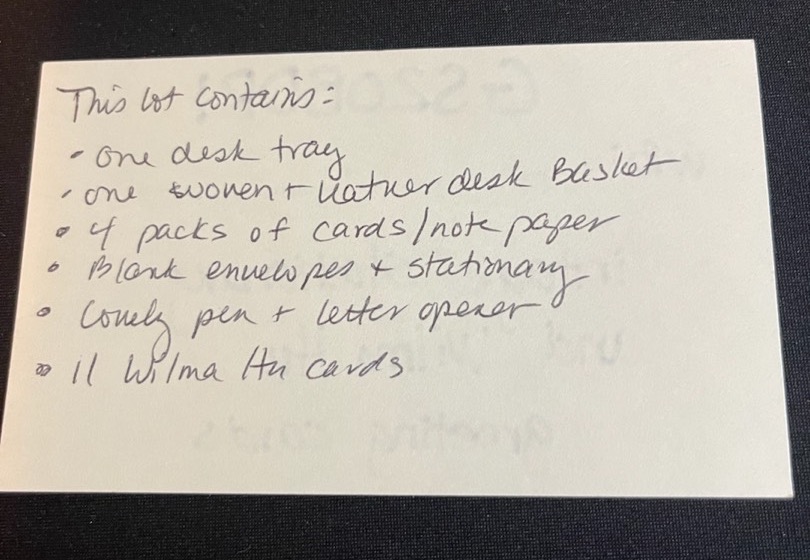 This lot contains:
• one desk tray
• one woven + leather desk Basket
• 4 packs of cards/note paper
• Blank envelopes + stationary
• Lovely pen + letter opener
• 11 Wilma Hu cards